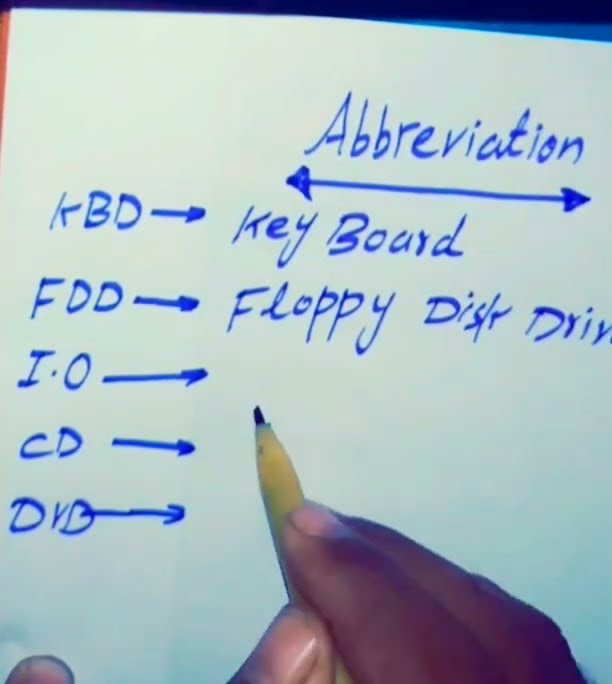 Abbreviation
KBD → Key Board
FDD → Floppy Disk Driv
I.O →
CD →
DVD →